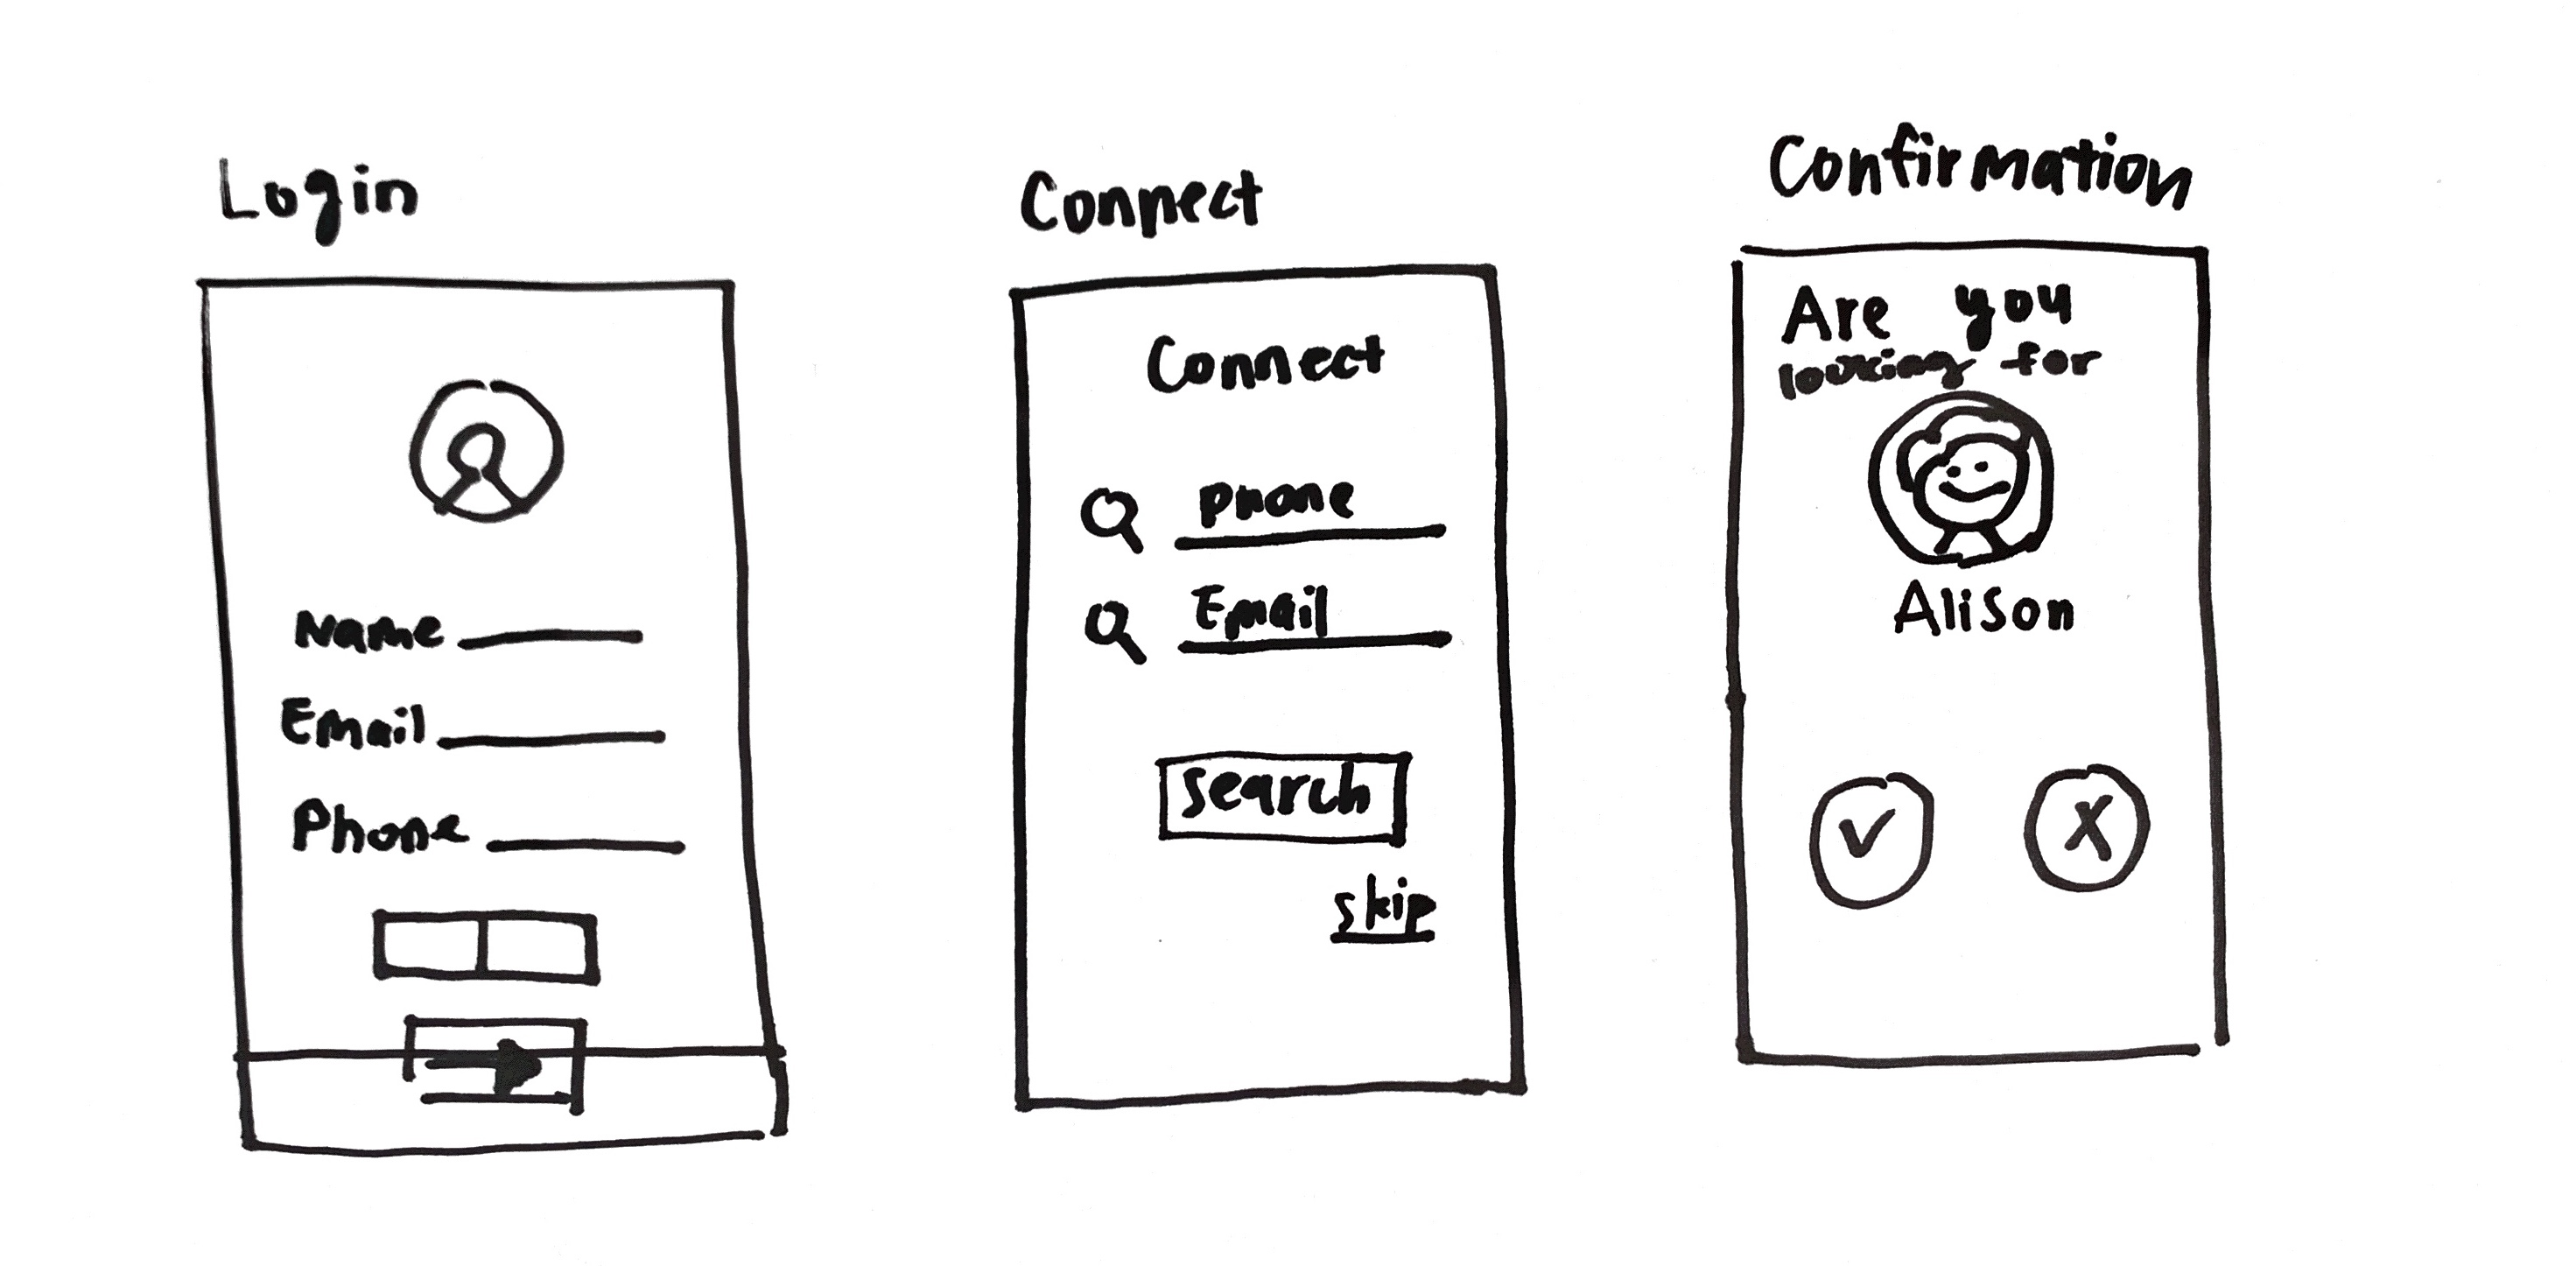 Login
Name
Email
Phone
Connect
Connect
Phone
Email
Search
skip
Confirmation
Are you
looking for
Alison